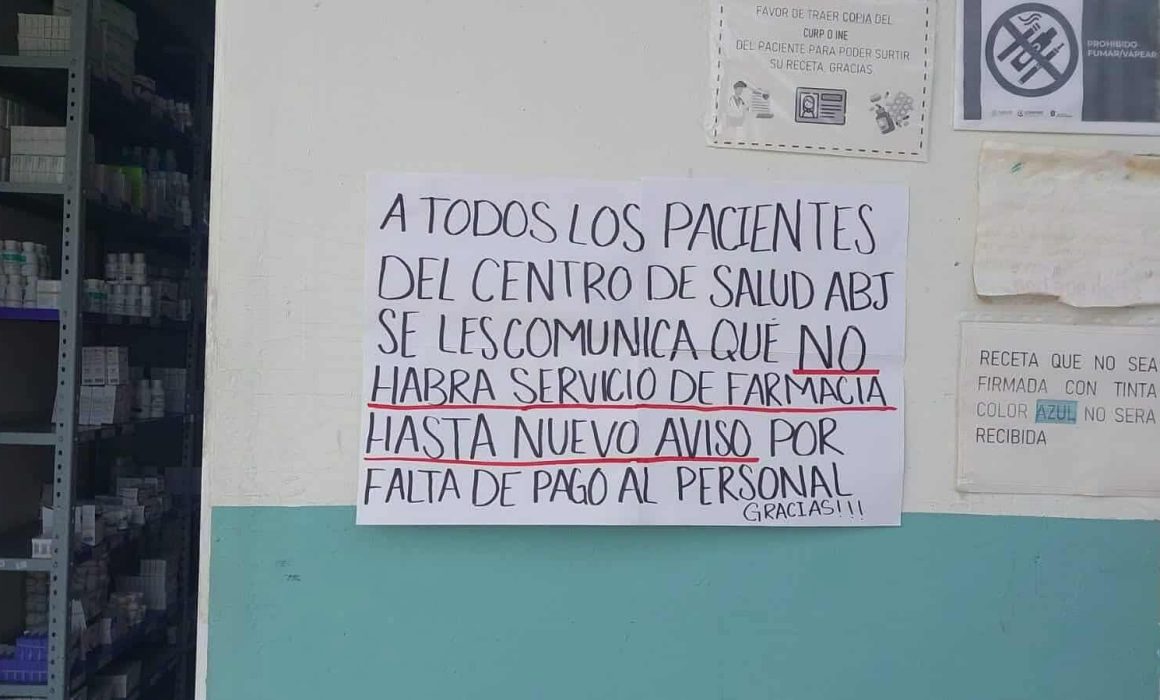 FAVOR DE TRAER COPIA DEL
CURP O INE
DEL PACIENTE PARA PODER SURTIR
SU RECETA. GRACIAS
PROHIBIDO
FUMAR/VAPEAR
A TODOS LOS PACIENTES
DEL CENTRO DE SALUD ABJ
SE LES COMUNICA QUE NO
HABRA SERVICIO DE FARMACIA
HASTA NUEVO AVISO POR
FALTA DE PAGO AL PERSONAL
GRACIAS!!!
RECETA QUE NO SEA
FIRMADA CON TINTA
COLOR AZUL NO SERA
RECIBIDA